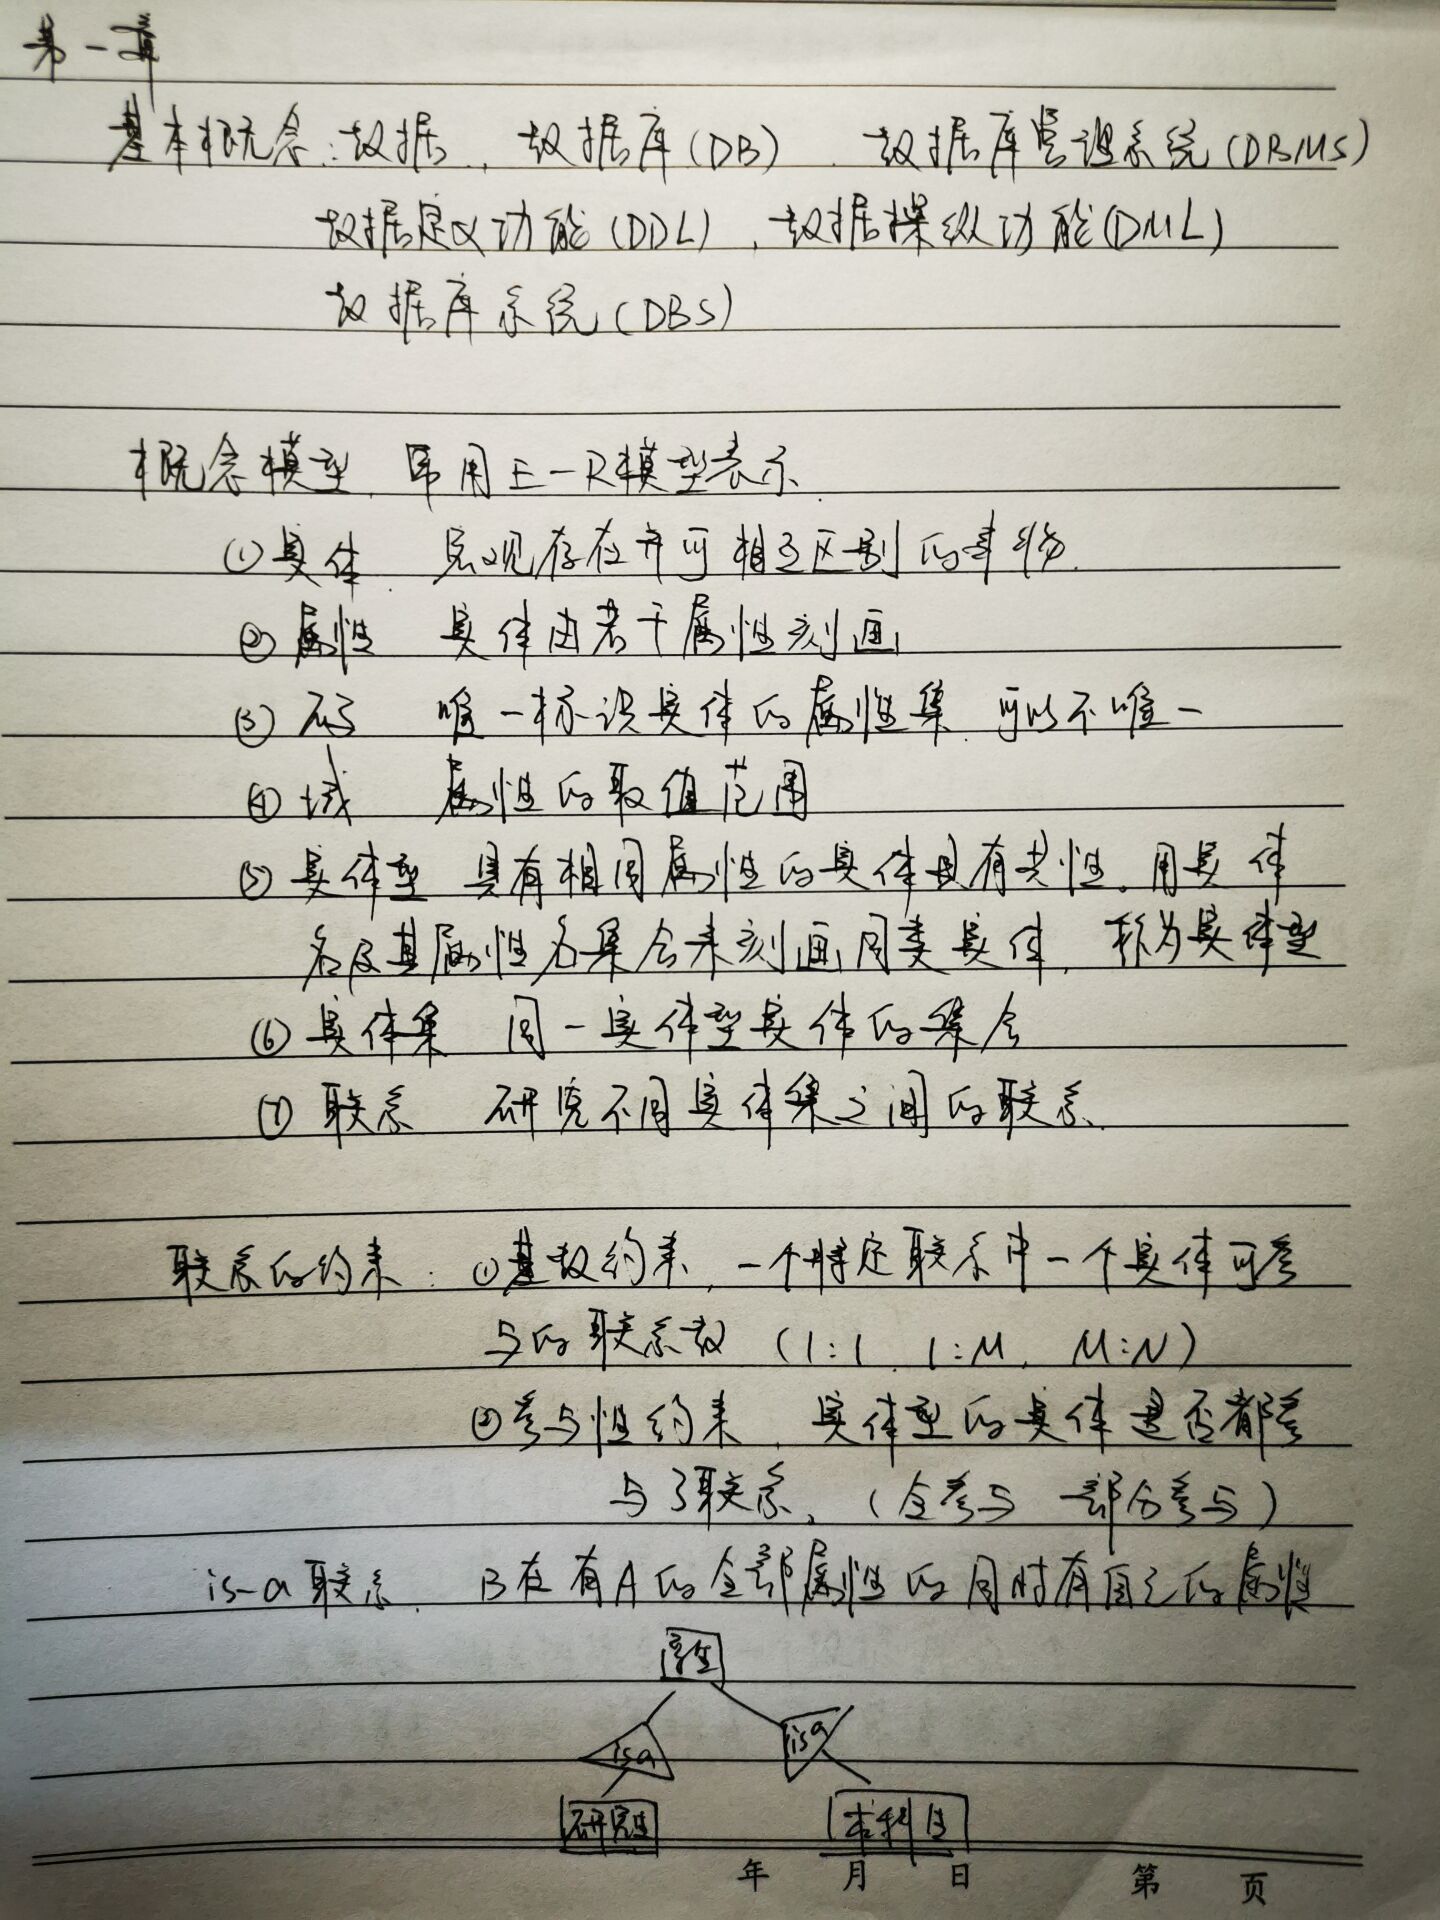 第一章
基本概念：数据、数据库(DB)、数据库管理系统(DBMS)
数据定义功能(DDL)、数据操纵功能(DML)
数据库系统(DBS)
概念模型，常用E-R模型表示.
①实体. 客观存在并可相互区别的事物.
②属性 实体由若干属性刻画
③码 唯一标识实体的属性集. 可以不唯一
④域 属性的取值范围
⑤实体型 具有相同属性的实体具有共性。用实体
名及其属性名集合来刻画同类实体，称为实体型
⑥实体集 同一实体型实体的集合
⑦联系 研究不同实体集之间的联系.
联系的约束：①基数约束，一个特定联系中一个实体可参
与的联系数 (1:1, 1:M, M:N)
②参与性约束，实体型的实体是否都参
与了联系。(全参与 部分参与)
is-a联系. B在有A的全部属性的同时有自己的属性
学生
isa isa
研究生 本科生
年 月 日 第 页